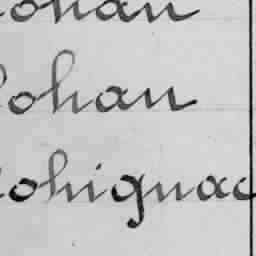 ohan
ohan
ohignac